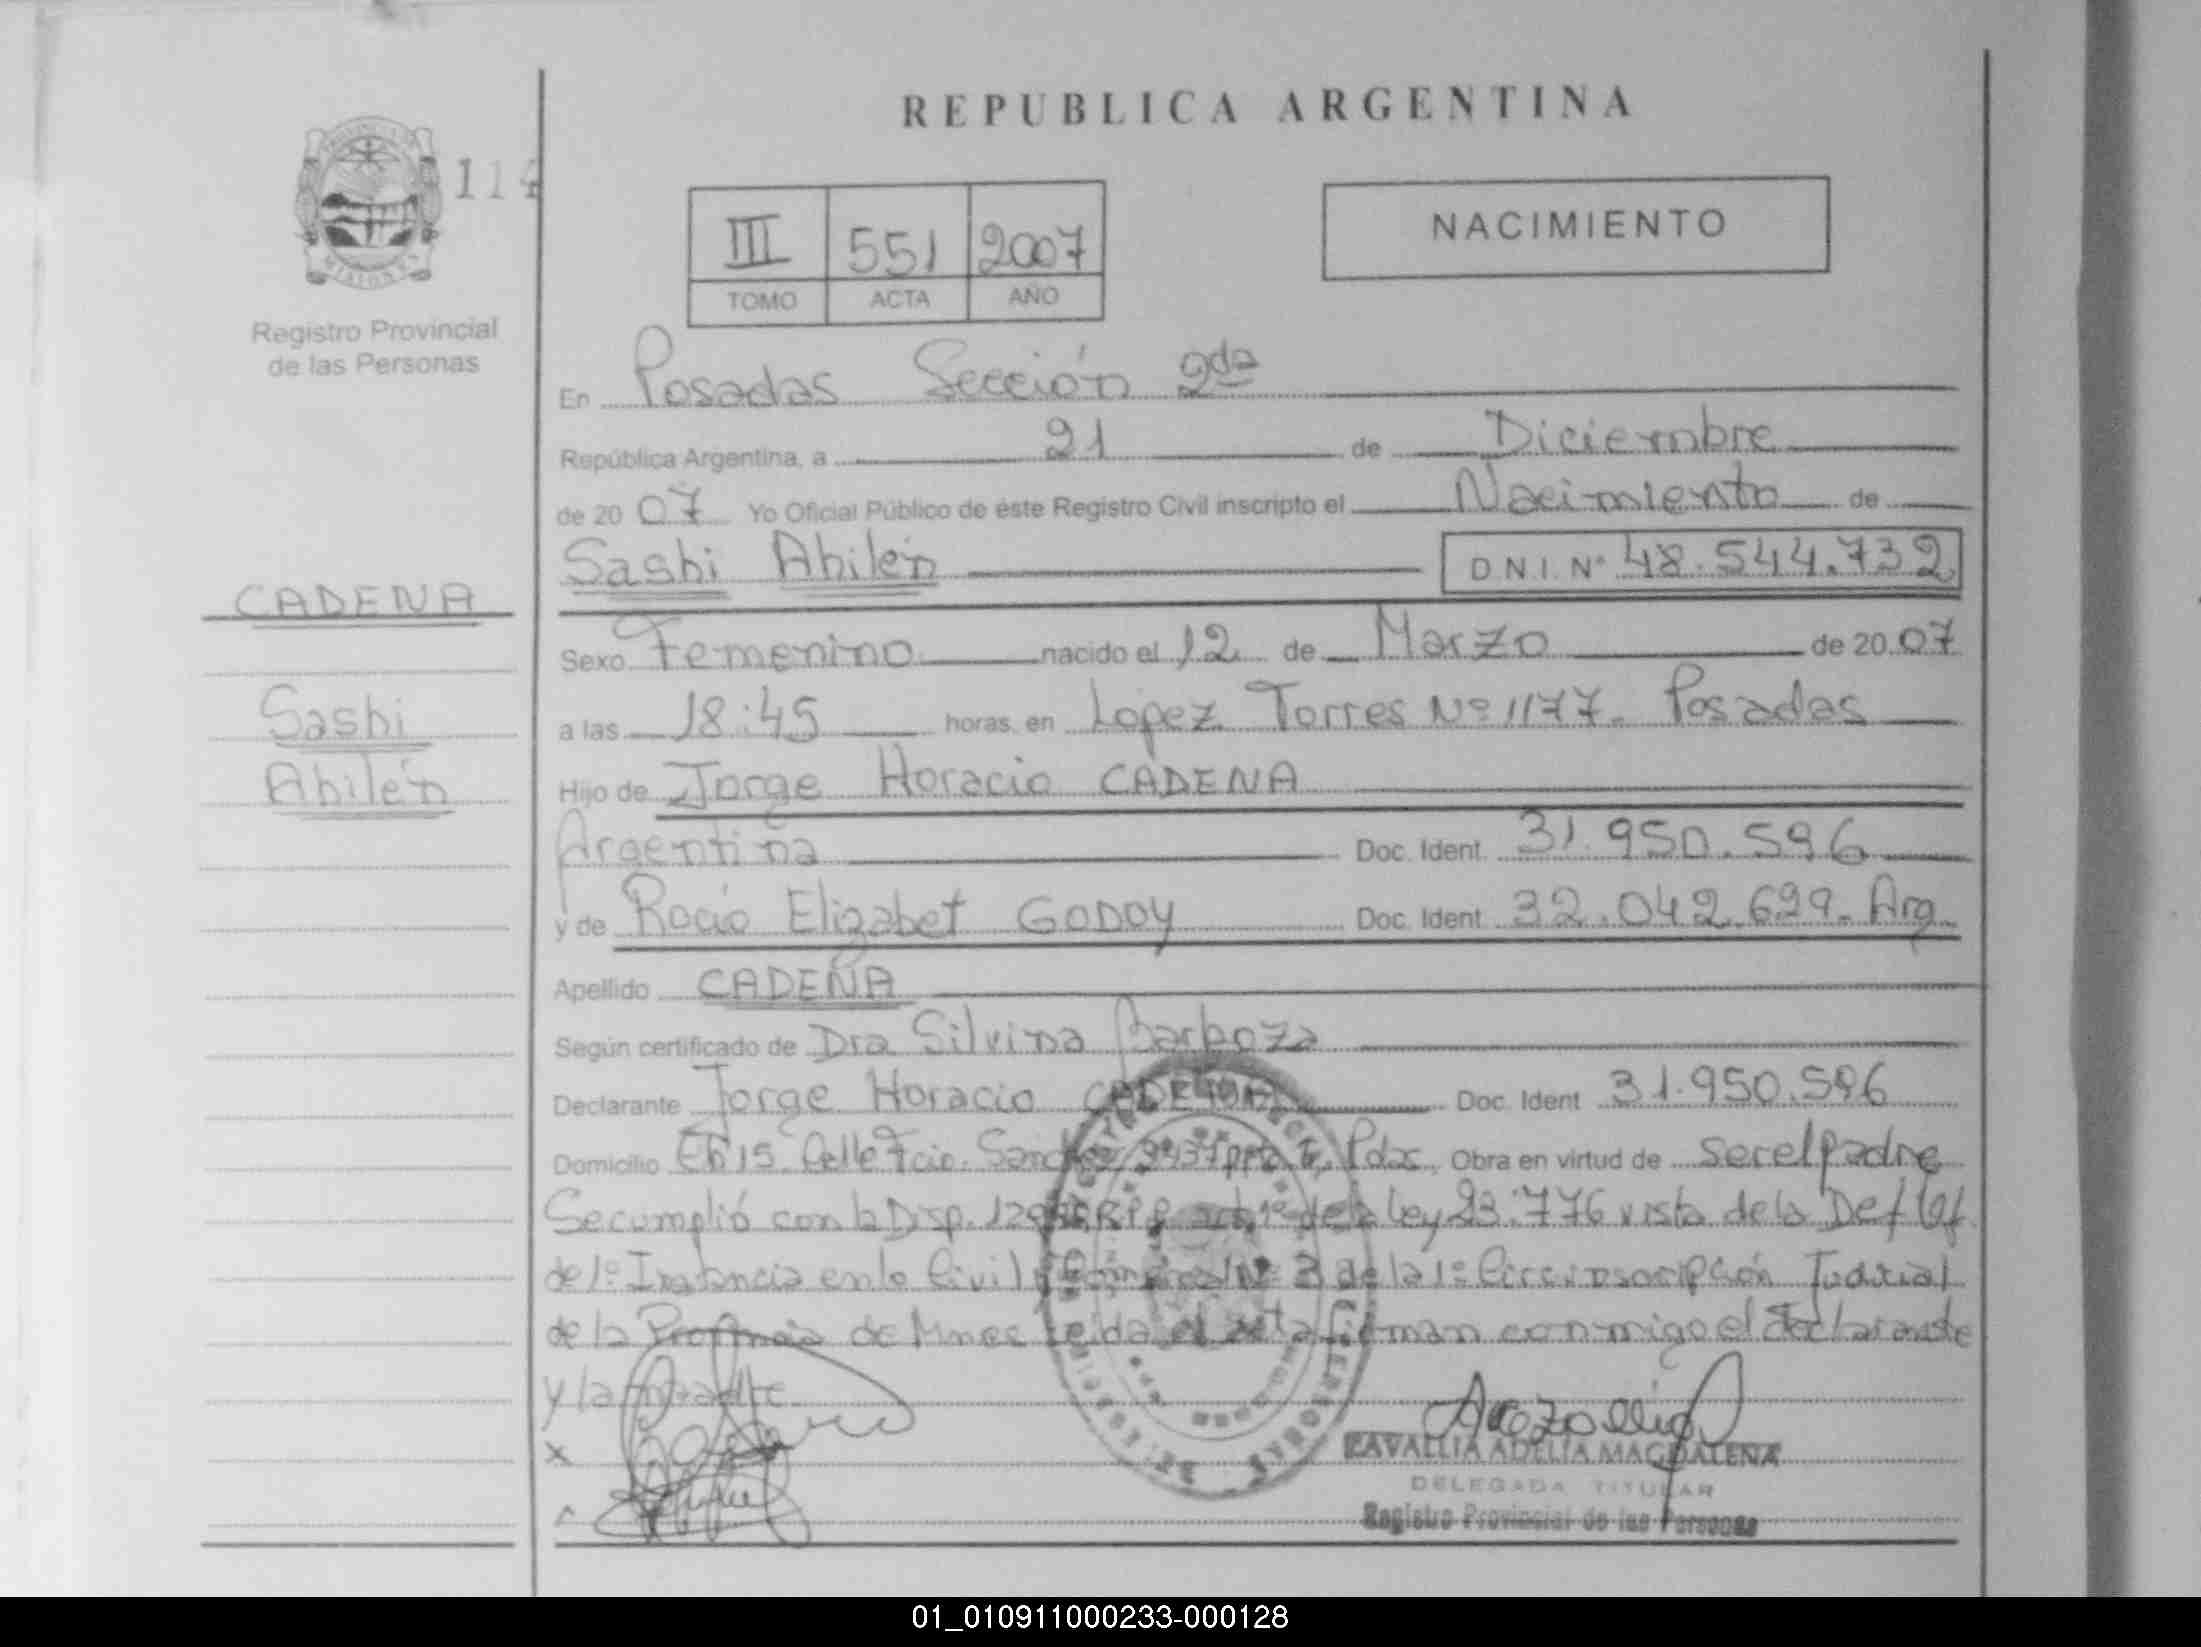 REPUBLICA ARGENTINA
PROVINCIA DE MISIONES
114
Registro Provincial
de las Personas
III 551 2007
TOMO ACTA AÑO
NACIMIENTO
En Posadas Sección 2da
República Argentina, a 21 de Diciembre
de 20 07 Yo Oficial Público de éste Registro Civil inscripto el Nacimiento de
Sashi Ahilén D.N.I. Nº 48.544.732
CADENA
Sexo Femenino nacido el 12 de Marzo de 20 07
Sashi
a las 18:45 horas, en Lopez Torres Nº 1177. Posadas
Ahilén
Hijo de Jorge Horacio CADENA
Argentina Doc. Ident. 31.950.596
y de Rocio Elizabet GODOY Doc. Ident. 32.042.699. Arg.
Apellido CADENA
Según certificado de Dra Silvina Barboza
Declarante Jorge Horacio CADENA Doc. Ident 31.950.596
Domicilio Ch 15 Calle Fcio. Pdas. Obra en virtud de ser el padre
Se cumplió con la Disp. de la Ley 23.776 vista de la Def Of.
de 1º Instancia en lo Civil y Comercial Nº 2 de la 1º Circunscripción Judicial
de la Provincia de Mnes leida el acta firman conmigo el declarante
y la madre
x
CAVALLIA ADELIA MAGDALENA
DELEGADA TITULAR
Registro Provincial de las Personas
01_010911000233-000128